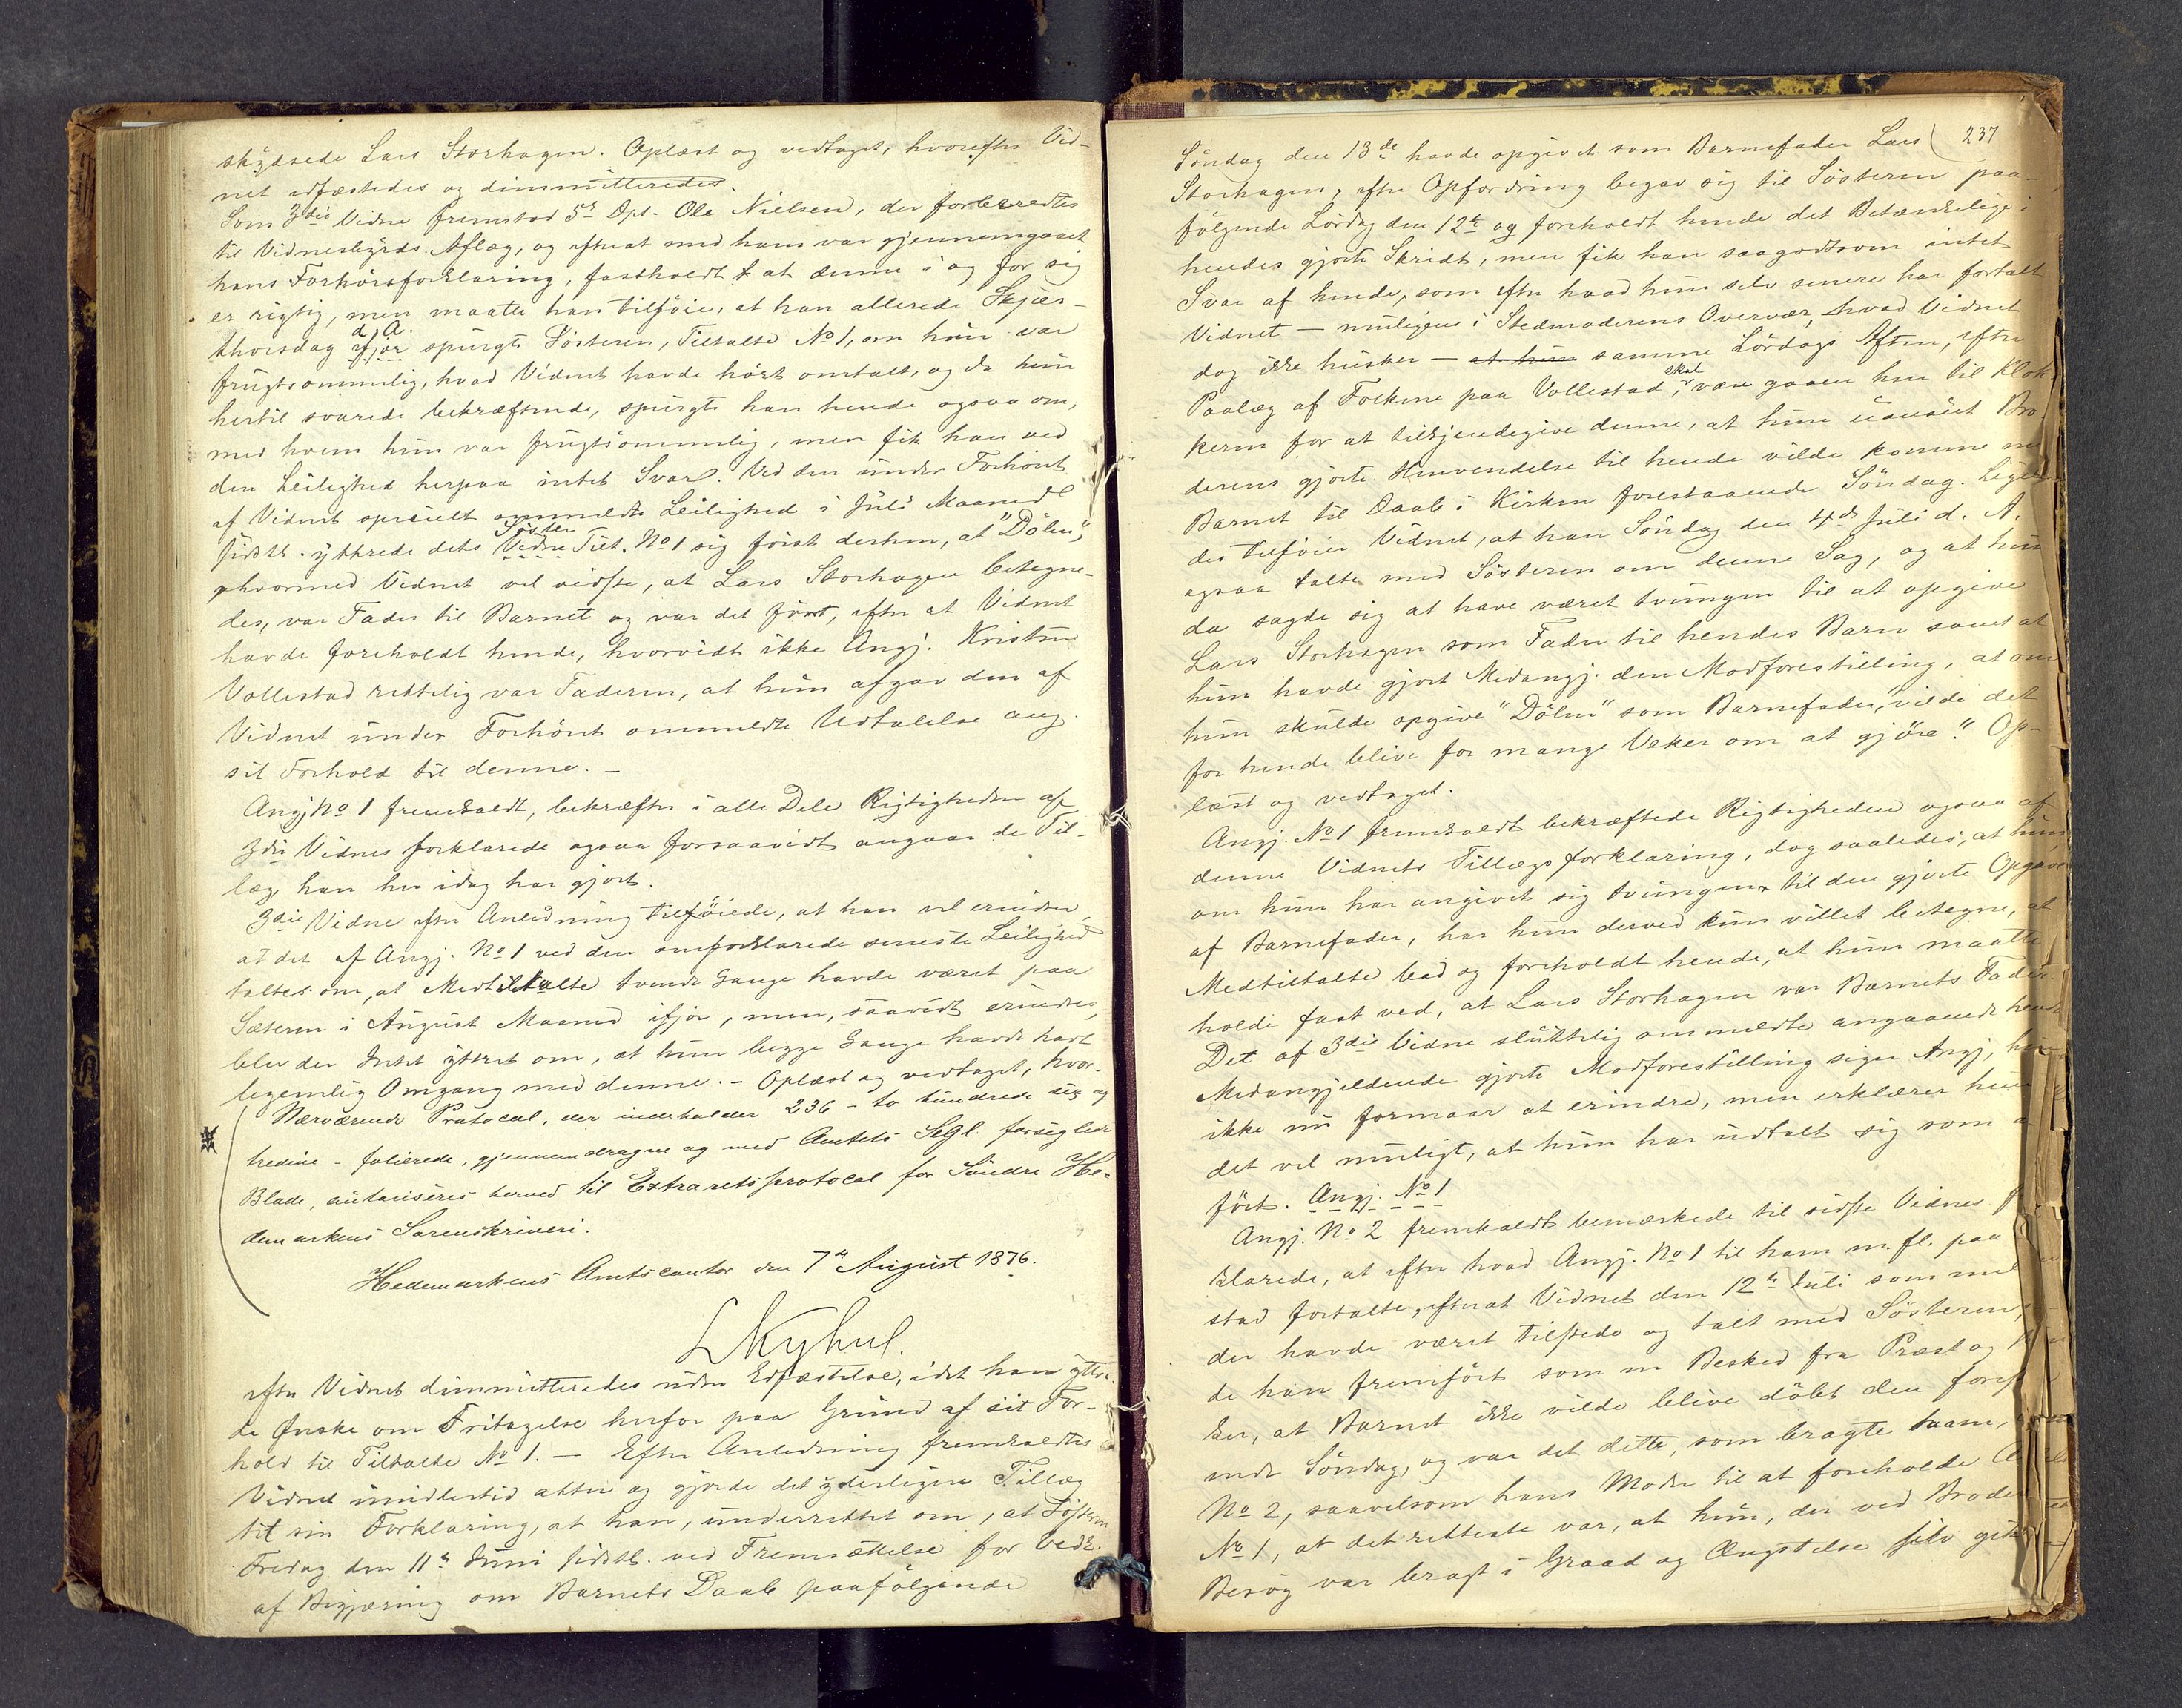 skydsede Lars Storhagen. Oplæst og vedtaget, hvorefter Vid-
net edfæstedes og dimmitteredes.
Som 3die Vidne fremstod 5s Dpt. Ole Nielsen, der forberedtes
til Vidnesbyrds Aflæg, og efterat med ham var gjennemgaaet
hans Forhørsforklaring, fastholdt at denne i og for sig
er rigtig, men maatte han tilföie, at han allerede Skjær-
thorsdag d. A. ifjor spurgte Søsteren, Tiltalte No 1, om hun var
frugtsommelig, hvad Vidnet havde hørt omtalt, og da hun
hertil svarede bekræftende, spurgte han hende ogsaa om,
med hvem hun var frugtsommelig, men fik han ved
den Leilighed herpaa intet Svar. Ved den under Forhöret
af Vidnet specielt ommeldte Leilighed i Juli Maaned
sidstl. yttrede dets Søster Vidne Tilt. No 1 sig först derhen, at "Dölen",
hvormed Vidnet vel vidste, at Lars Storhagen betegne-
des, var Fader til Barnet og var det først, efter at Vidnet
havde foreholdt hende, hvorvidt ikke Angj. Kristen
Vollestad rettelig var Faderen, at hun afgav den af
Vidnet under Forhöret ommeldte Udtalelse ang.
sit Forhold til denne. –
Angj. No 1 fremkaldt, bekræfter i alle Dele Rigtigheden af
3die Vidnes forklarede ogsaa forsaavidt angaar de Til-
læg, han her idag har gjort.
3die Vidne efter Anledning tilföiede, at han vel erindrer,
at det af Angj. No 1 ved den omforklarede seneste Leilighed
taltes om, at Medtiltalte tvende Gange havde været paa
Sæteren i August Maaned ifjor, men, saavidt erindres,
blev der Intet yttret om, at hun begge Gange havde havt
legemlig Omgang med denne. – Oplæst og vedtaget, hvor-
Nærværende Protocol, der indeholder 236 – to hundrede sex og
tredive – folierede, gjennemdragne og med Amtets Segl. forseglede
Blade, autoriseres herved til Extraretsprotocol for Söndre He-
demarkens Sorenskriveri.
Hedemarkens Amtscontor den 7de August 1876.
efter Vidnet dimmitteredes uden Edfæstelse, idet han yttre-
de Ønske om Fritagelse herfor paa Grund af sit For-
hold til Tiltalte No 1. – Efter Anledning fremkaldtes
Vidnet imidlertid atter og gjorde det yderligere Tillæg
til sin Forklaring, at han, underrettet om, at Søsteren
Fredag den 11te Juni sidstl. ved Fremsættelse for Vedk.
af Begjæring om Barnets Daab paafölgende
237
Söndag den 13de havde opgivet som Barnefader Lars
Storhagen, efter Opfordring begav sig til Søsteren paa-
følgende Lördag den 12te og foreholdt hende det Betænkelige i
hendes gjorte Skridt, men fik han saagodtsom intet
Svar af hende, som efter hvad hun selv senere har fortalt
Vidnet – muligens i Stedmoderens Overvær, hvad Vidnet
dog ikke husker – at hun samme Lördags Aften, efter
Paalæg af Folkene paa Vollestad, skal være gaaen hen til Klok
keren for at tilkjendegive denne, at hun uanseet Bro-
derens gjorte Henvendelse til hende vilde komme med
Barnet til Daab i Kirken forestaaende Söndag. Ligele-
des tilföier Vidnet, at han Söndag den 4de Juli d. A.
ogsaa talte med Søsteren om denne Sag, og at hun
da sagde sig at have været tvungen til at opgive
Lars Storhagen som Fader til hendes Barn samt at
hun havde gjort Medangj. den Modforestilling, at om
hun skulde opgive "Dölen" som Barnefader, "vilde det
for hende blive for mange Veker om at gjöre." Op-
læst og vedtaget.
Angj. No 1 fremkaldt bekræftede Rigtigheden ogsaa af
denne Vidnets Tillægsforklaring, dog saaledes, at hun
om hun har angivet sig tvungen til den gjorte Opgave
af Barnefader, har hun derved kun villet betegne, at
Medtiltalte bad og foreholdt hende, at hun maatte
holde fast ved, at Lars Storhagen var Barnets Fader.
Det af 3die Vidne sluttelig ommeldte angaaende hendes
Medangjeldende gjorte Modforestilling siger Angj., hun
ikke nu formaar at erindre, men erklærer hun
det vel muligt, at hun har udtalt sig som
ført. Angj. No 1
Angj. No 2 fremkaldt bemærkede til sidste Vidnes
klarede, at efter hvad Angj. No 1 til ham m. fl. paa
stad fortalte, efterat Vidnet den 12te Juli som
der havde været tilstede og talt med Søsteren,
de han fremført som en Besked fra Præst og
ker, at Barnet ikke vilde blive döbt den
ende Söndag, og var det dette, som bragte ham,
No 2, saavelsom hans Moder til at foreholde
No 1, at det retteste var, at hun, der ved Brode
Besøg var bragt i Graad og Ængstelse selv